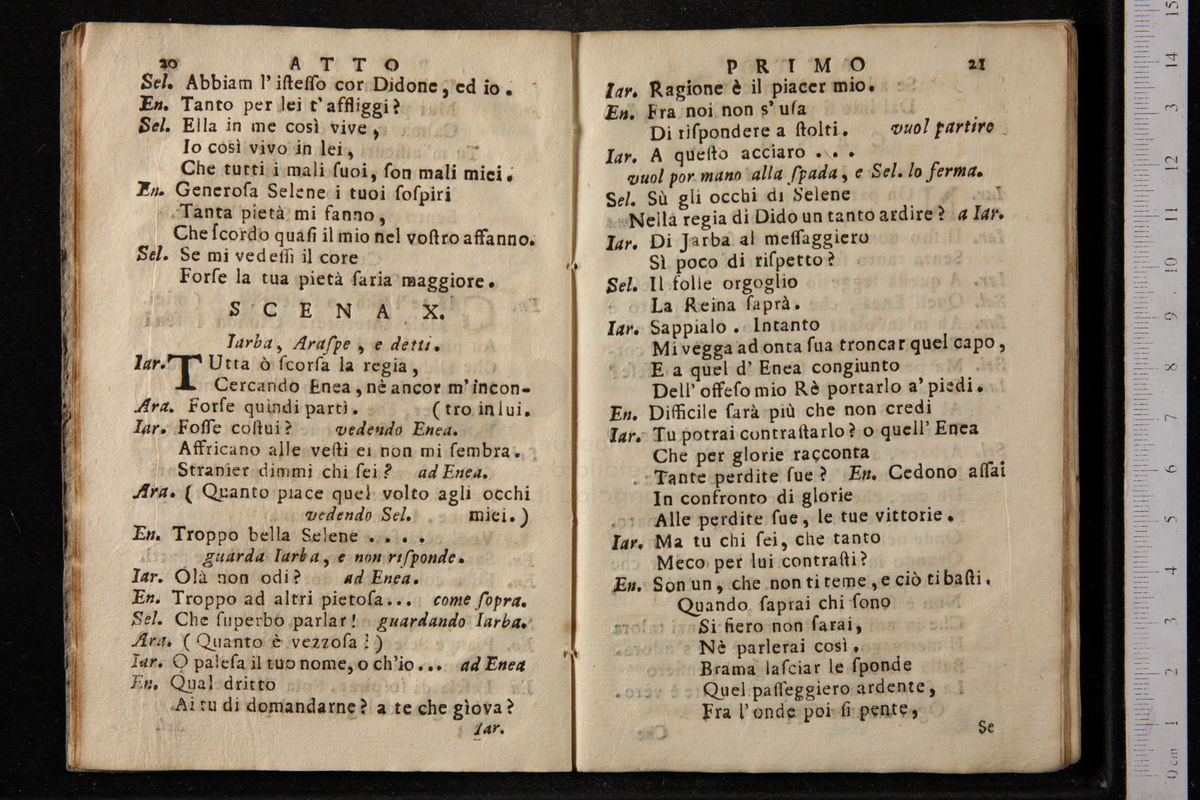 20 ATTO
Sel. Abbiam l' iſteſſo cor Didone, ed io.
En. Tanto per lei t' affliggi?
Sel. Ella in me così vive,
Io così vivo in lei,
Che tutti i mali ſuoi, ſon mali miei.
En. Generoſa Selene i tuoi ſoſpiri
Tanta pietà mi fanno,
Che ſcordo quaſi il mio nel voſtro affanno.
Sel. Se mi vedeſſi il core
Forſe la tua pietà ſaria maggiore.
SCENA X.
Iarba, Araſpe, e detti.
Iar. TUtta ò ſcorſa la regia,
Cercando Enea, nè ancor m' incon-
Ara. Forſe quindi partì. (tro in lui.
Iar. Foſſe coſtui? vedendo Enea.
Affricano alle veſti ei non mi ſembra.
Stranier dimmi chi ſei? ad Enea.
Ara. ( Quanto piace quel volto agli occhi
vedendo Sel. miei. )
En. Troppo bella Selene . . . .
guarda Iarba, e non riſponde.
Iar. Olà non odi? ad Enea.
En. Troppo ad altri pietoſa... come ſopra.
Sel. Che ſuperbo parlar! guardando Iarba.
Ara. ( Quanto è vezzoſa! )
Iar. O paleſa il tuo nome, o ch'io... ad Enea
En. Qual dritto
Ai tu di domandarne? a te che giova?
Iar.
PRIMO 21
Iar. Ragione è il piacer mio.
En. Fra noi non s' uſa
Di riſpondere a ſtolti. vuol partire
Iar. A queſto acciaro . . .
vuol por mano alla ſpada, e Sel. lo ferma.
Sel. Sù gli occhi di Selene
Nella regia di Dido un tanto ardire? a Iar.
Iar. Di Jarba al meſſaggiero
Sì poco di riſpetto?
Sel. Il folle orgoglio
La Reina ſaprà.
Iar. Sappialo . Intanto
Mi vegga ad onta ſua troncar quel capo,
E a quel d' Enea congiunto
Dell' offeſo mio Rè portarlo a' piedi.
En. Difficile ſarà più che non credi
Iar. Tu potrai contraſtarlo? o quell' Enea
Che per glorie racconta
Tante perdite ſue? En. Cedono aſſai
In confronto di glorie
Alle perdite ſue, le tue vittorie.
Iar. Ma tu chi ſei, che tanto
Meco per lui contraſti?
En. Son un, che non ti teme, e ciò ti baſti.
Quando ſaprai chi ſono
Si fiero non ſarai,
Nè parlerai così.
Brama laſciar le ſponde
Quel paſſeggiero ardente,
Fra l'onde poi ſi pente,
Se
0 cm 1 2 3 4 5 6 7 8 9 10 11 12 13 14 15